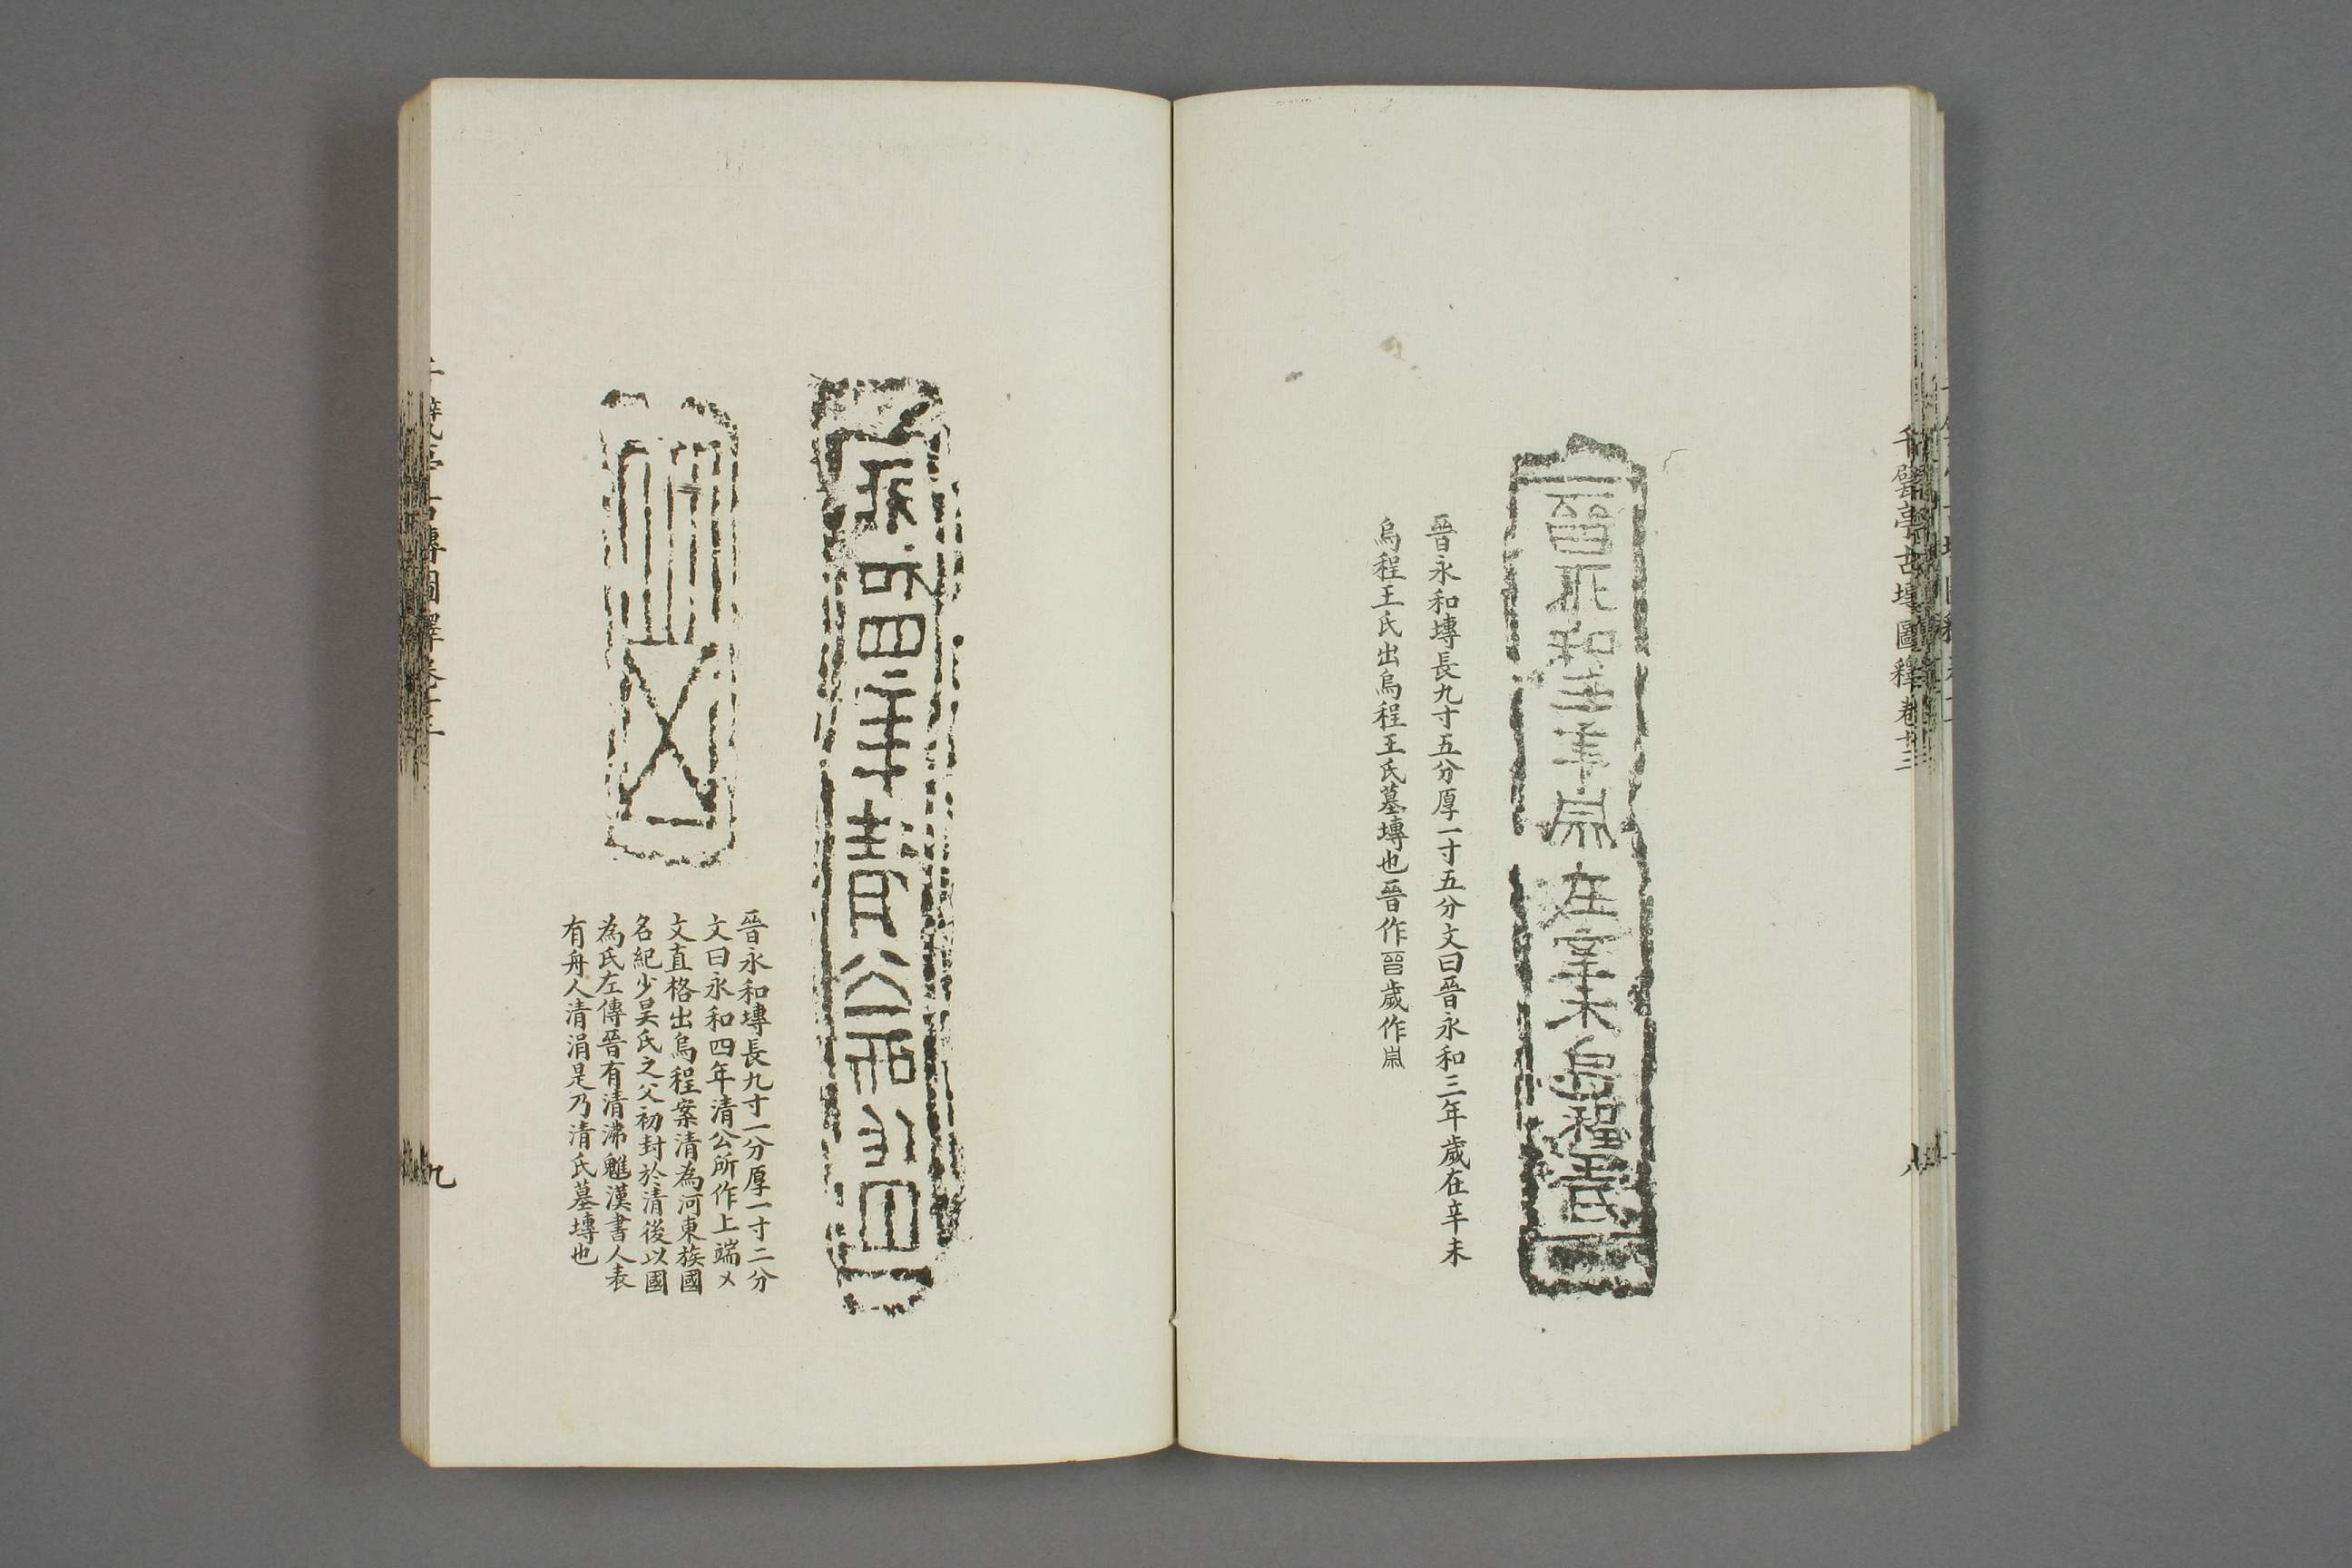 千甓亭古塼圖釋卷十三
八
晉永和三年歲在辛未烏程王氏
晉永和塼長九寸五分厚一寸五分文曰晉永和三年歲在辛未
烏程王氏出烏程王氏墓塼也晉作𣈆歲作
永和四年清公所作
晉永和塼長九寸一分厚一寸二分
文曰永和四年清公所作上端㐅
文直格出烏程案清為河東族國
名紀少昊氏之父初封於清後以國
為氏左傳晉有清沸魋漢書人表
有舟人清涓是乃清氏墓塼也
九